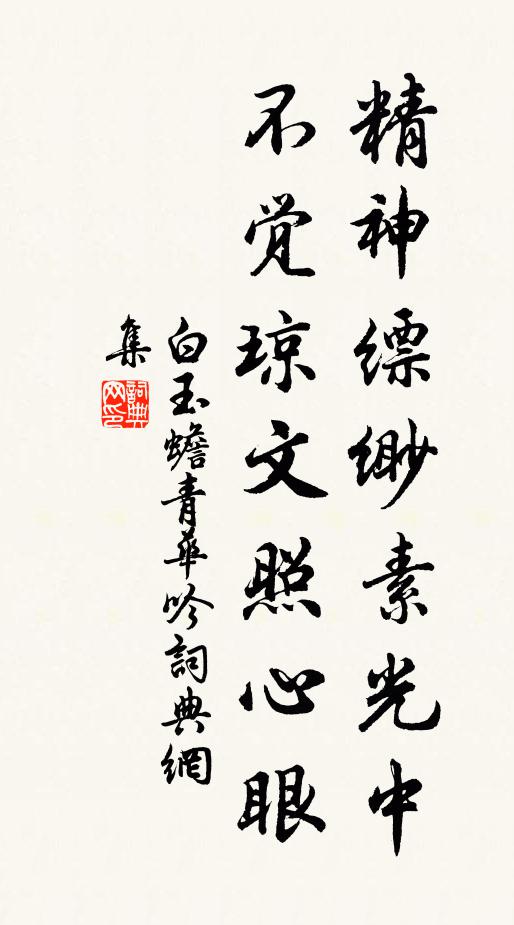 精神缥缈素光中
不觉琼文照心眼
白玉蟾青華吟詞典網
集
詞典网印